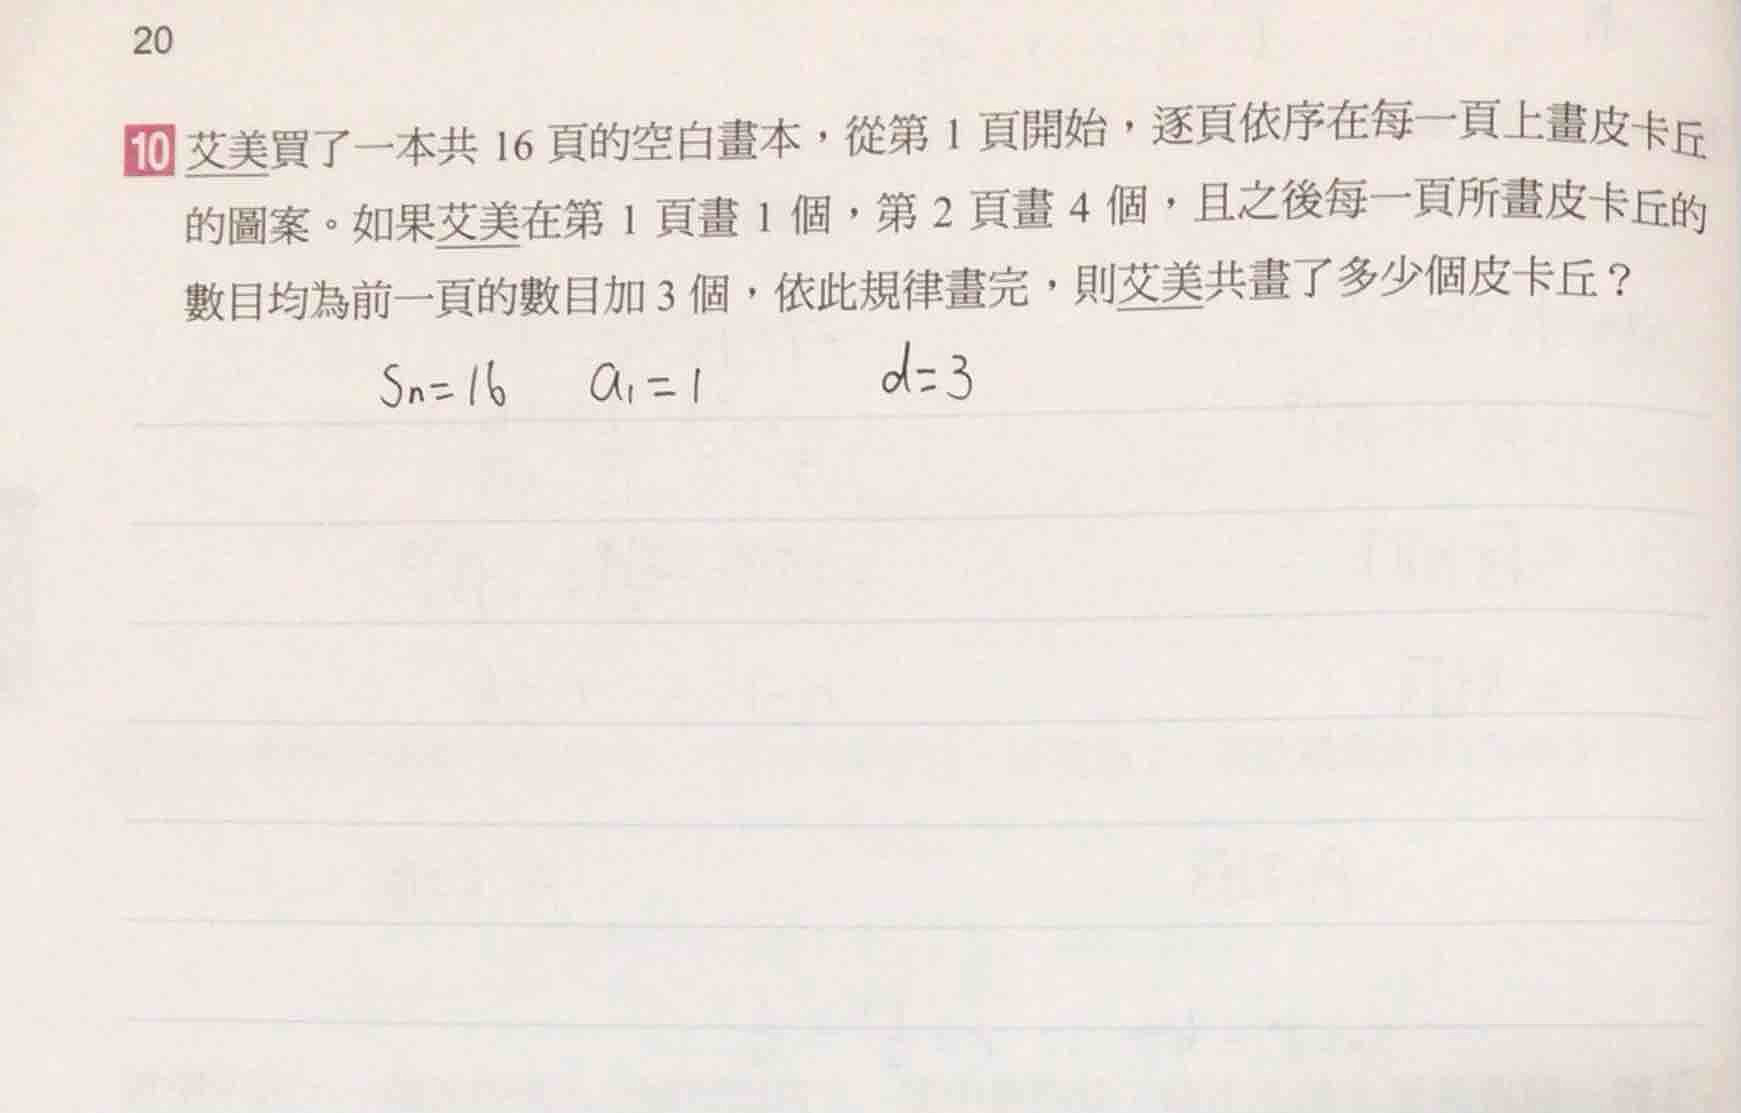 20
10 艾美買了一本共 16 頁的空白畫本，從第 1 頁開始，逐頁依序在每一頁上畫皮卡丘
的圖案。如果艾美在第 1 頁畫 1 個，第 2 頁畫 4 個，且之後每一頁所畫皮卡丘的
數目均為前一頁的數目加 3 個，依此規律畫完，則艾美共畫了多少個皮卡丘？
Sn=16 a₁=1 d=3